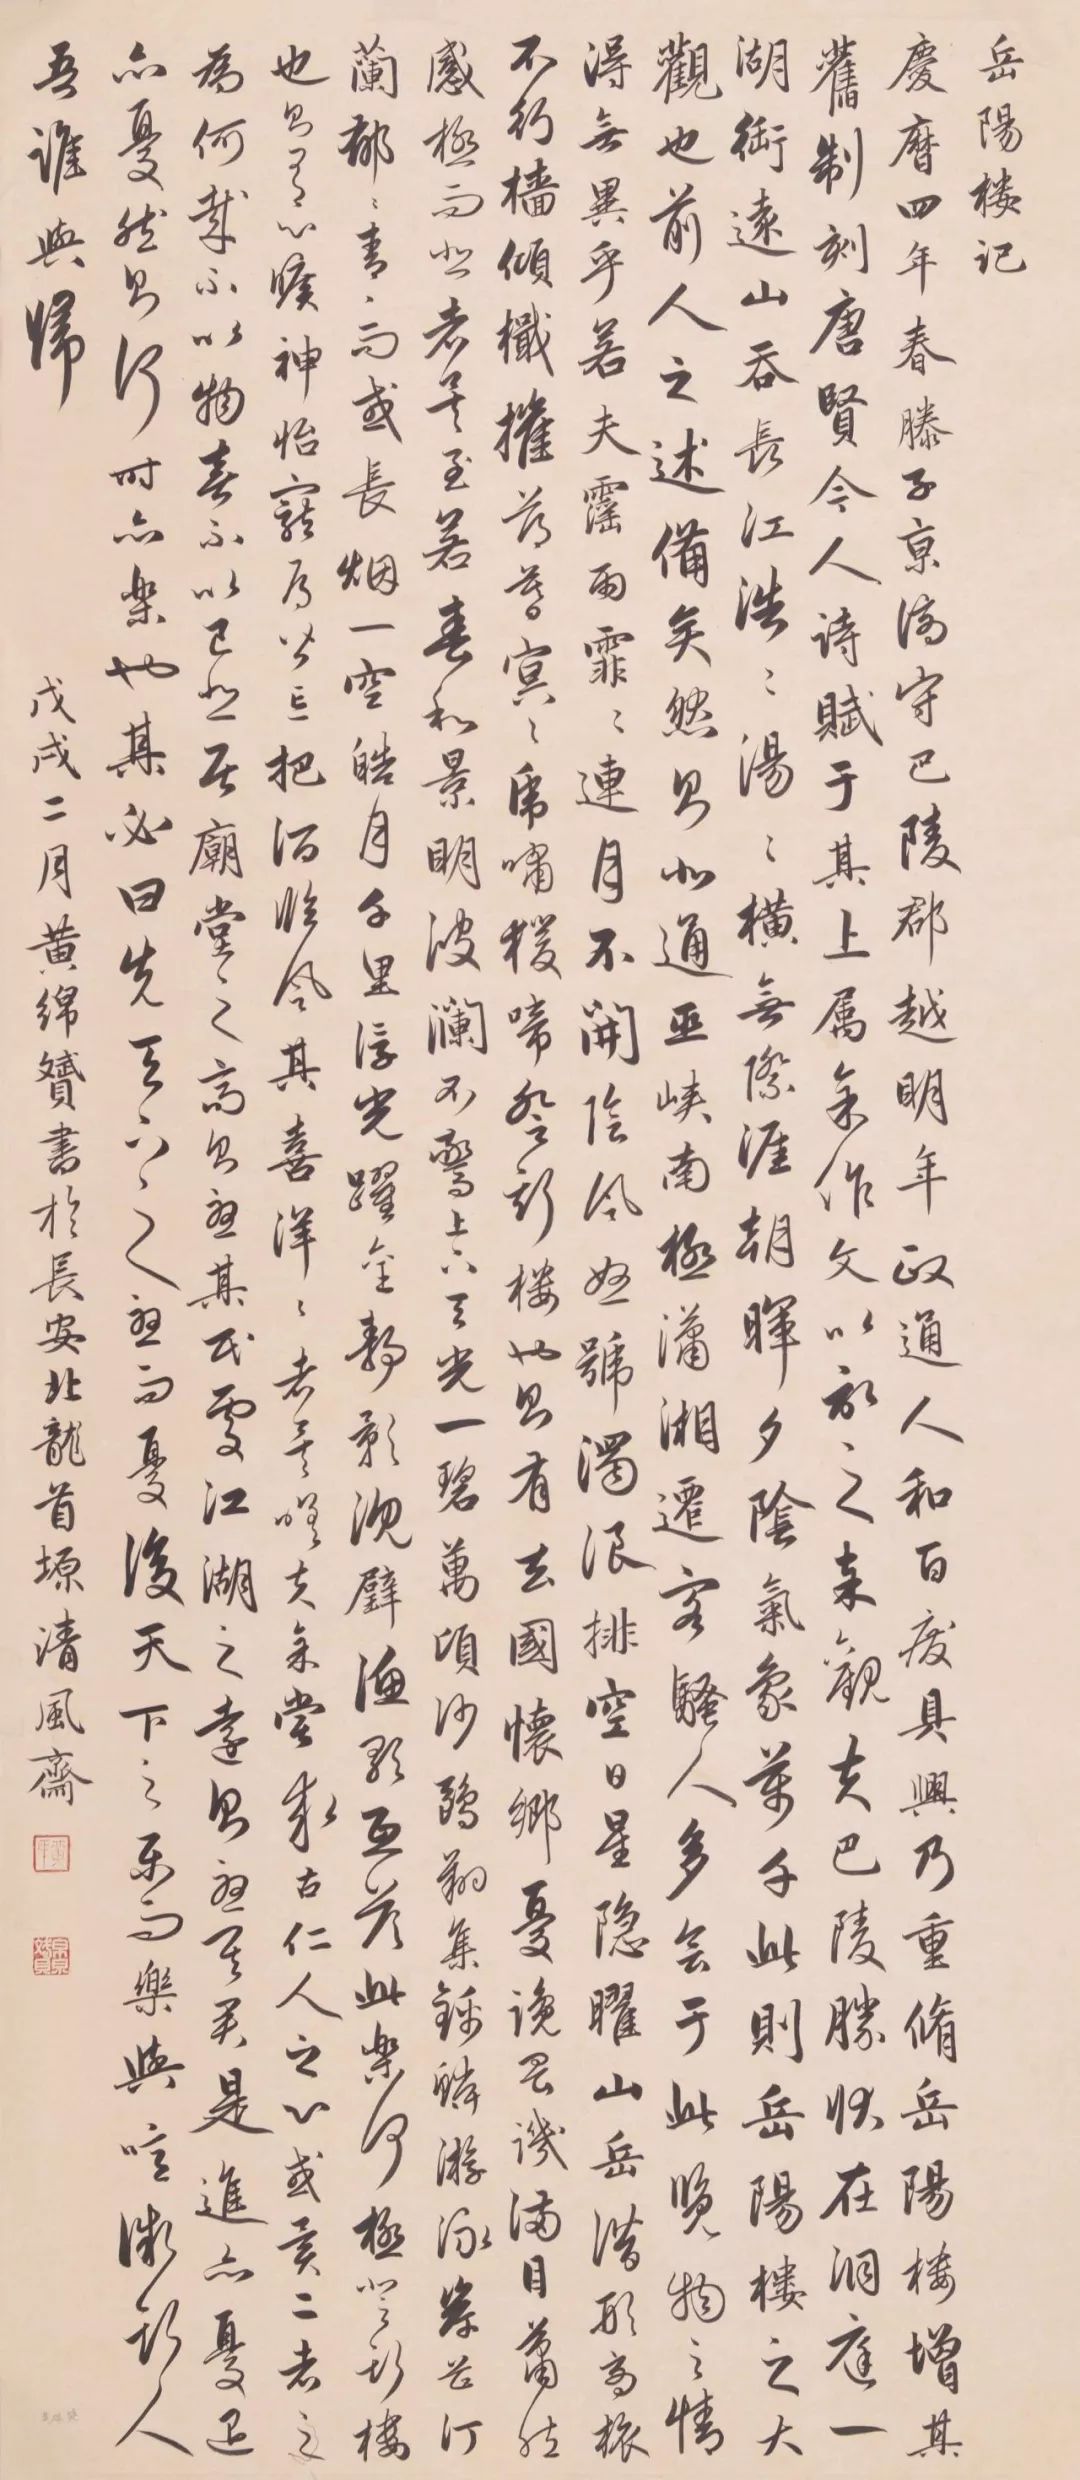 岳陽楼记
慶曆四年春滕子京谪守巴陵郡越明年政通人和百廢具興乃重脩岳陽楼增其
舊制刻唐賢今人诗賦于其上属余作文以記之余觀夫巴陵勝状在洞庭一
湖衘遠山吞長江浩〻湯〻横無際涯朝暉夕陰氣象萬千此則岳陽楼之大
觀也前人之述備矣然則北通巫峡南極瀟湘遷客騷人多会于此覽物之情
得無異乎若夫霪雨霏〻連月不開陰風怒號濁浪排空日星隐曜山岳潜形商旅
不行檣傾檝摧薄暮冥〻虎嘯猨啼登斯楼也則有去國懷鄉憂讒畏譏满目蕭然
感極而悲者矣至若春和景明波瀾不驚上下天光一碧萬頃沙鷗翔集錦鳞游泳岸芷汀
蘭郁〻青〻而或長烟一空皓月千里浮光躍金静影沈壁渔歌互答此樂何極登斯楼
也則有心曠神怡寵辱皆忘把酒临风其喜洋〻者矣嗟夫余嘗求古仁人之心或異二者之
為何哉不以物喜不以己悲居廟堂之高則憂其民處江湖之遠則憂其君是進亦憂退
亦憂然則何時亦樂也其必曰先天下之人憂而憂後天下之樂而樂與噫微斯人
吾誰與歸
戊戌二月黄綿贇書於長安北龍首塬清風齋